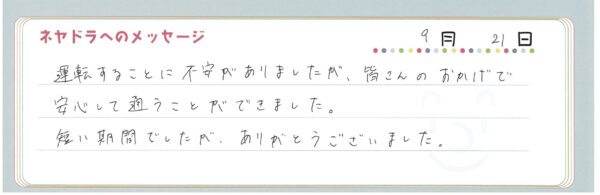 ネヤドラへのメッセージ 9月 21日
運転することに不安がありましたが、皆さんのおかげで
安心して通うことができました。
短い期間でしたが、ありがとうございました。